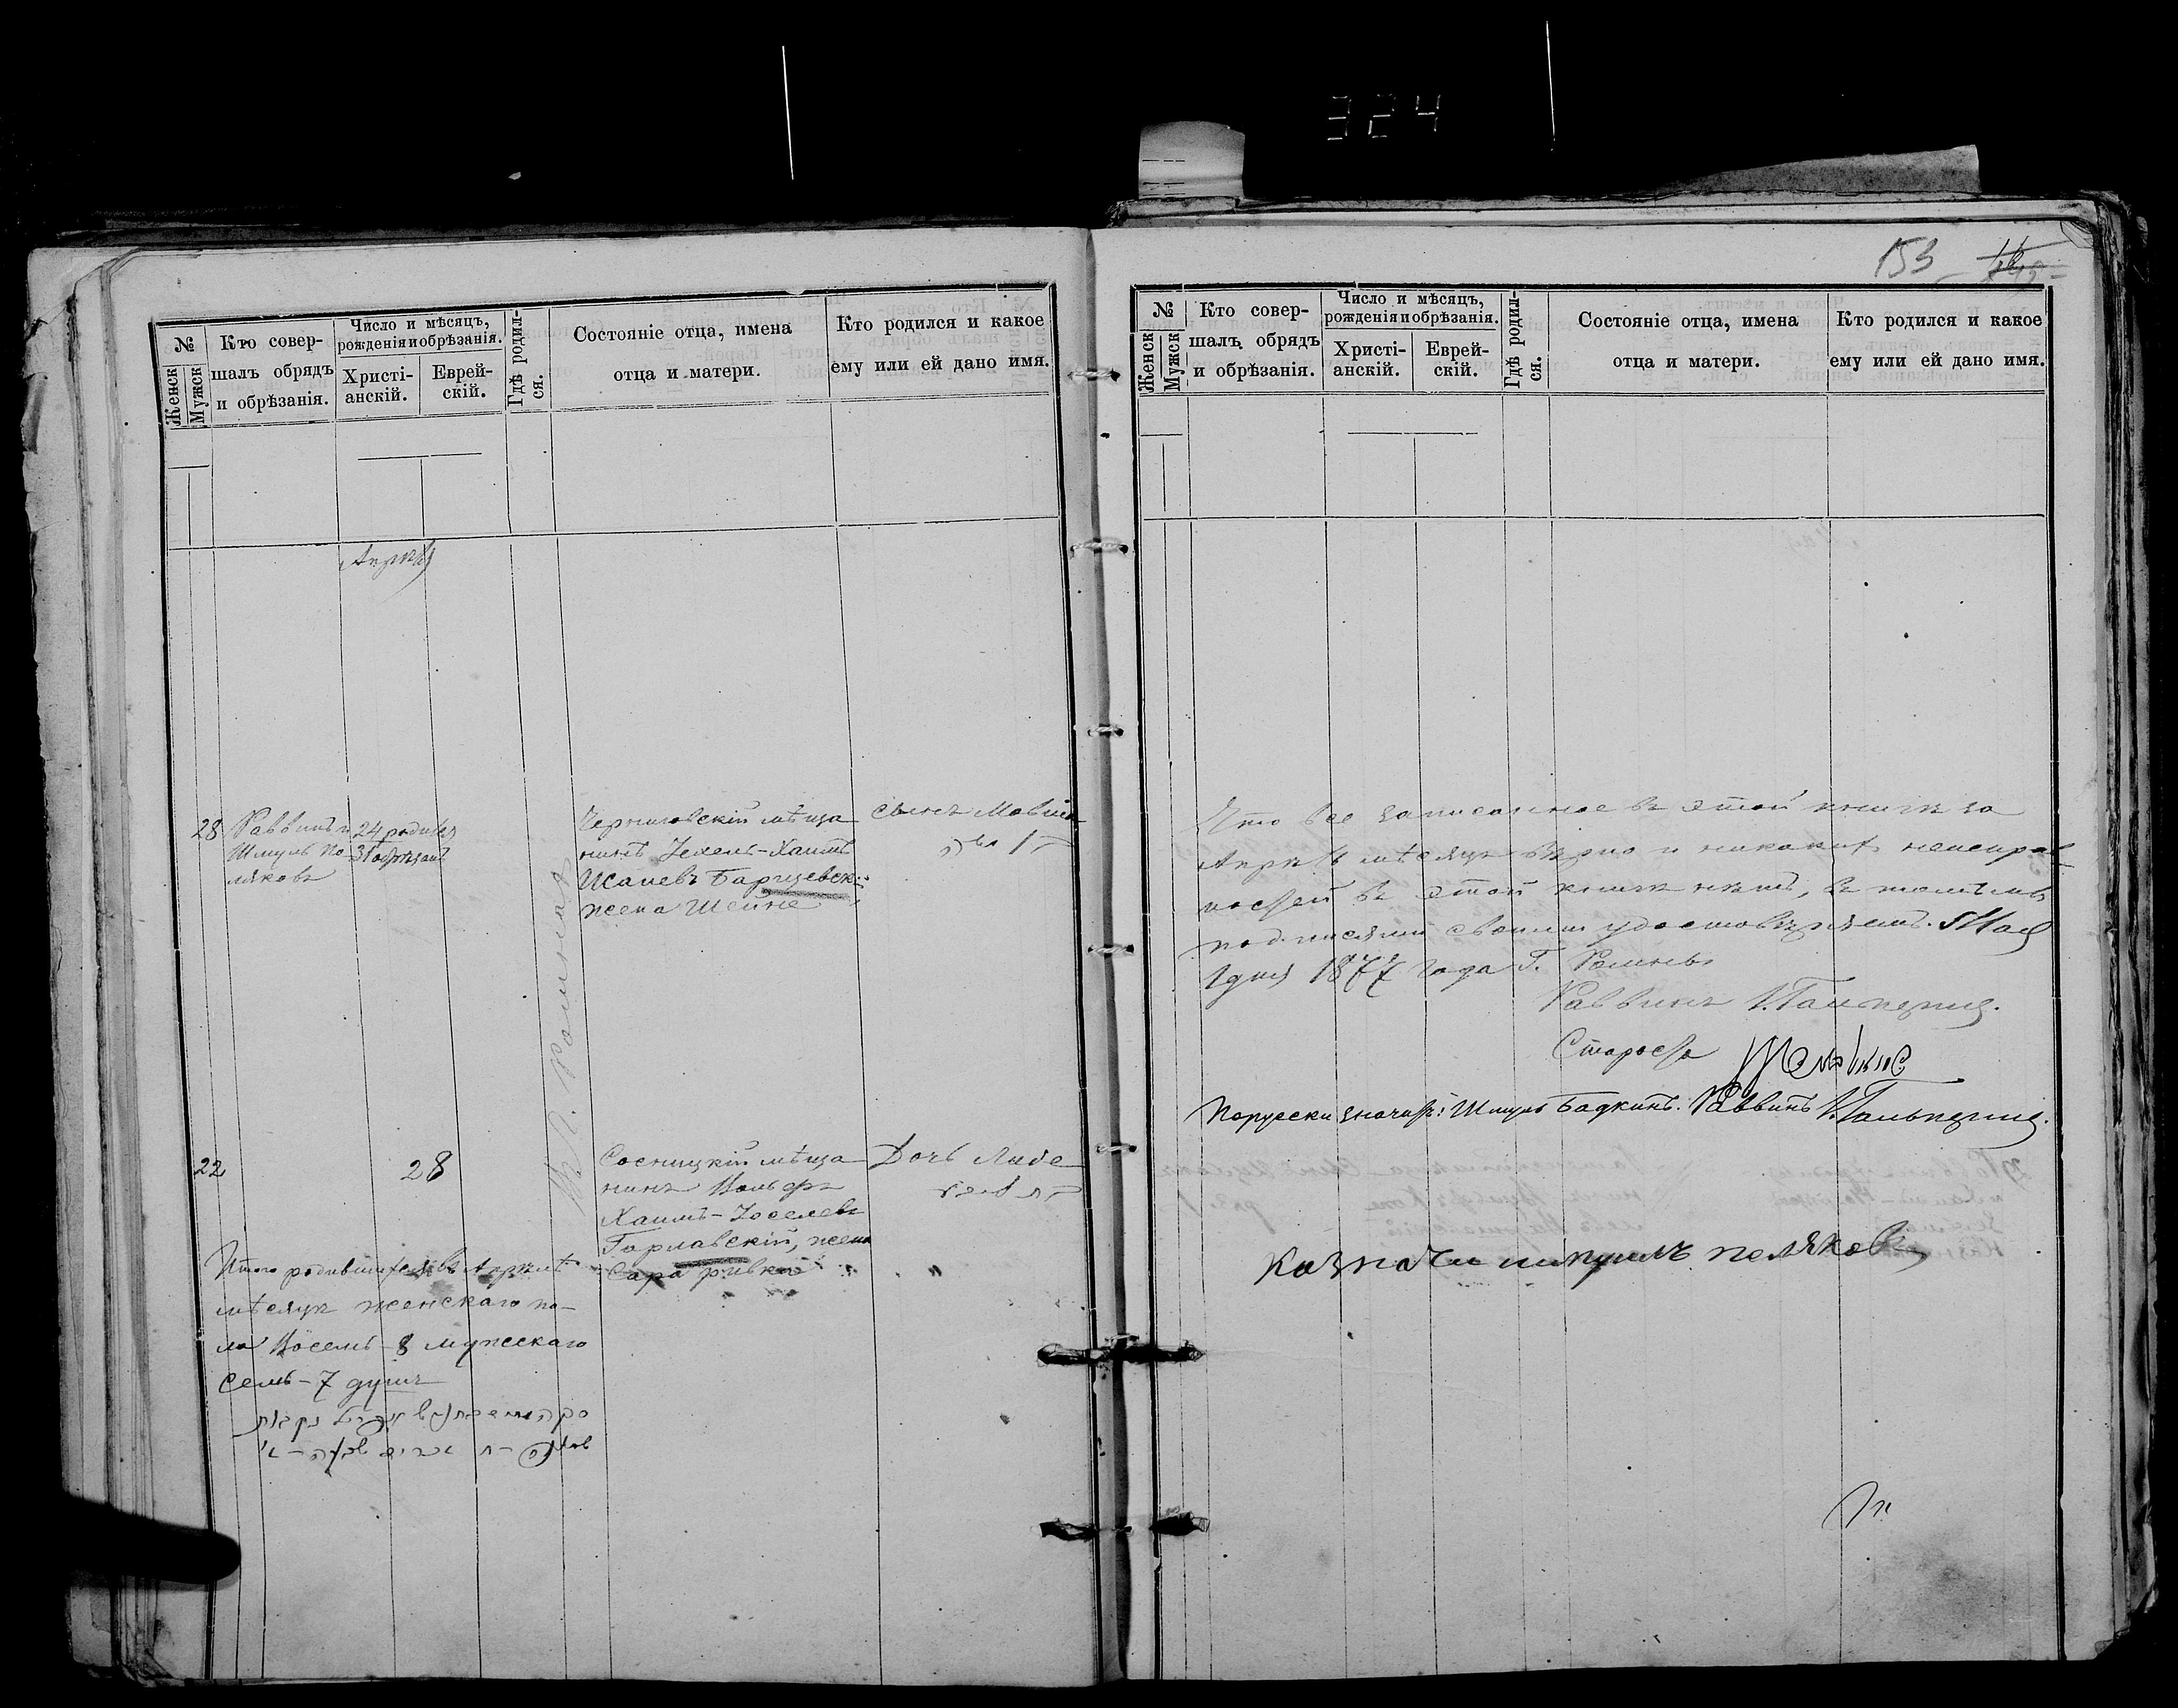 324
№
Женск
Мужск
Кто совер-
шалъ обрядъ
и обрѣзанія.
Число и мѣсяцъ,
рожденія и обрѣзанія.
Христі-
анскій.
Еврей-
скій.
Гдѣ родил-
ся.
Состояніе отца, имена
отца и матери.
Кто родился и какое
ему или ей дано имя.
Апрѣль
28
Раввинъ и
Шмуль По-
ляковъ
24 родился
31 обрѣзанъ
Черниговскій мѣща-
нинъ Іехель-Хаимъ
Исаевъ
жена Шейне
сынъ Мовша
Въ г. Ромнахъ
22
28
Сосницкій мѣща-
нинъ Вольфъ
Хаимъ-Іоселевъ
Горлавскій, жена
Сара Ривка
Дочь Либе
Итого родившихся въ Апрѣлѣ
мѣсяцѣ женскаго по-
ла Восемь - 8 мужскаго
семь - 7 душъ
153
№
Женск
Мужск
Кто совер-
шалъ обрядъ
и обрѣзанія.
Число и мѣсяцъ,
рожденія и обрѣзанія.
Христі-
анскій.
Еврей-
скій.
Гдѣ родил-
ся.
Состояніе отца, имена
отца и матери.
Кто родился и какое
ему или ей дано имя.
Что все записанное въ этой книгѣ за
Апрѣль мѣсяцъ вѣрно и никакихъ неисправ-
ностей въ этой книгѣ нѣтъ, въ томъ мы
подписями своими удостовѣряемъ. Мая
1 дня 1877 года Г. Ромны
Раввинъ І. Гальперинъ.
Староста
По русски значитъ: Шмуль Бадкинъ. Раввинъ І. Гальперинъ.
Казначи поляковъ